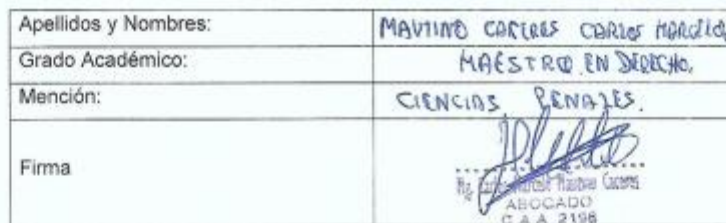 Apellidos y Nombres: MAUTINO CACERES CARLOS MARCELO
Grado Académico: MAESTRO EN DERECHO.
Mención: CIENCIAS PENALES.
Firma
Mg. Carlos Marcelo Mautino Caceres
ABOGADO
C.A.A. 2198